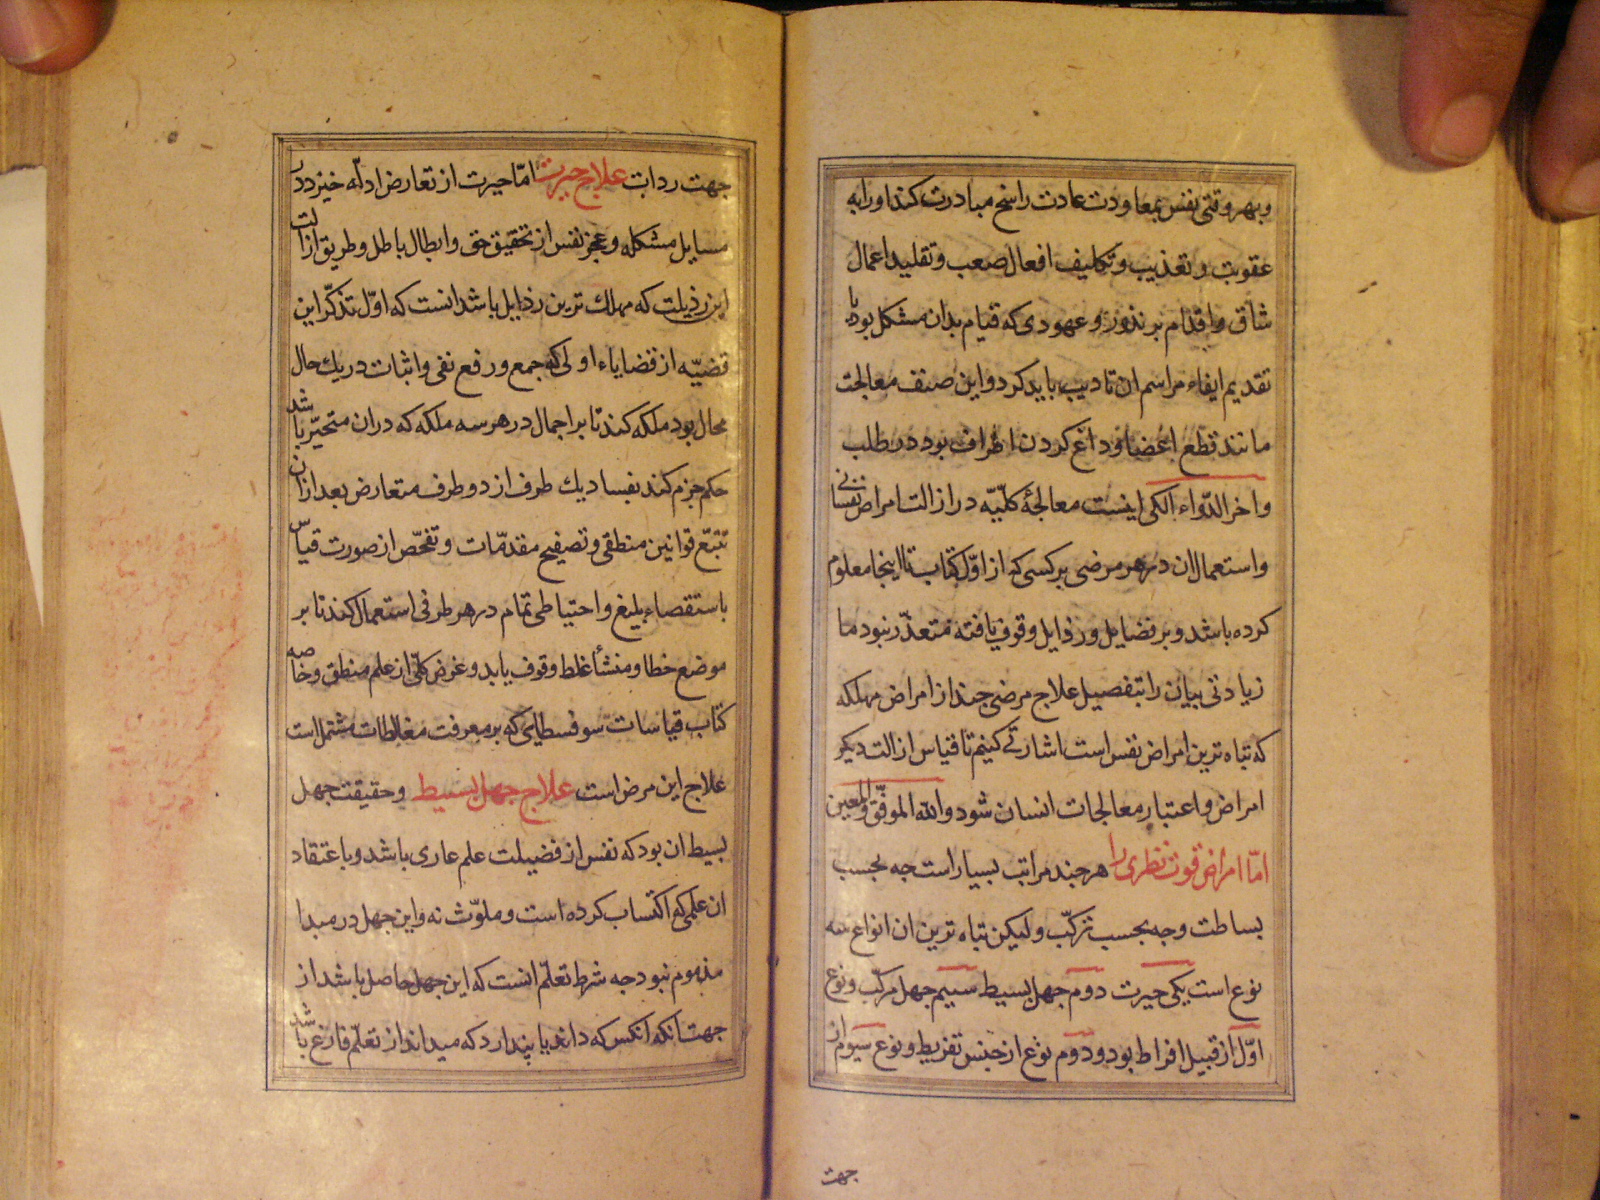 وبهر وقتی نفس بمعاودت عادت راسخ مبادرت کند او را به
عقوبت و تعذیب و تکلیف افعال صعب و تقلید اعمال
شاق و اقدام بر نذور و عهودی که قیام بدان مشکل بود با
تقدیم ایفاء مراسم ان تادیب باید کرد و این صنف معالجت
مانند قطع اعضا و داغ کردن اطراف بود در طلب
واخر الدّواء الکی اینست معالجهٔ کلّیّه در ازالت امراض نفسانی
و استعمال ان در هر مرضی بر کسی که از اوّل کتاب تا اینجا معلوم
کرده باشد و بر فضایل و رذایل وقوف یافته متعذّر نبود ما
زیادتی بیان را بتفصیل علاج مرضی چند از امراض مهلکه
که تباه ترین امراض نفس است اشارتی کنیم تا قیاس ازالت دیگر
امراض و اعتبار معالجات اسان شود والله الموفّق والمعین
امّا امراض قوت نظری را هر چند مراتب بسیار است چه بحسب
بساطت و چه بحسب ترکّب ولیکن تباه ترین ان انواع سه
نوع است یکی حیرت دوم جهل بسیط سیم جهل مرکّب و نوع
اوّل از قبیل افراط بود و دوم نوع از جنس تفریط و نوع سیوم از
جهت
جهت ردات علاج حیرت امّا حیرت از تعارض ادلّه خیزد در
مسایل مشکله و عجز نفس از تحقیق حق و ابطال باطل و طریق ازالت
این رذیلت که مهلک ترین رذایل باشد انست که اوّل تذکّر این
قضیّه از قضایاء اولی که جمع و رفع نفی و اثبات در یك حال
محال بود ملکه کند تا بر اجمال در هر سه ملکه که دران متحیّر باشد
حکم جزم کند بفساد یك طرف از دو طرف متعارض بعد ازان
تتبّع قوانین منطقی و تصفیح مقدّمات و تفحّص از صورت قیاس
باستقصاء بلیغ و احتیاطی تمام در هر طرفی استعمال کند تا بر
موضع خطا و منشأ غلط وقوف یابد و غرض کلّی از علم منطق و خاصه
کتاب قیاسات سوفسطایی که بر معرفت مغالطات مشتمل است
علاج این مرض است علاج جهل بسیط و حقیقت جهل
بسیط ان بود که نفس از فضیلت علم عاری باشد و باعتقاد
ان علمی که اکتساب کرده است و ملوّث نه و این جهل در مبدا
مذموم نبود چه شرط تعلّم انست که این جهل حاصل باشد از
جهت انکه انکس که داند یا پندارد که میداند از تعلّم فارغ باشد